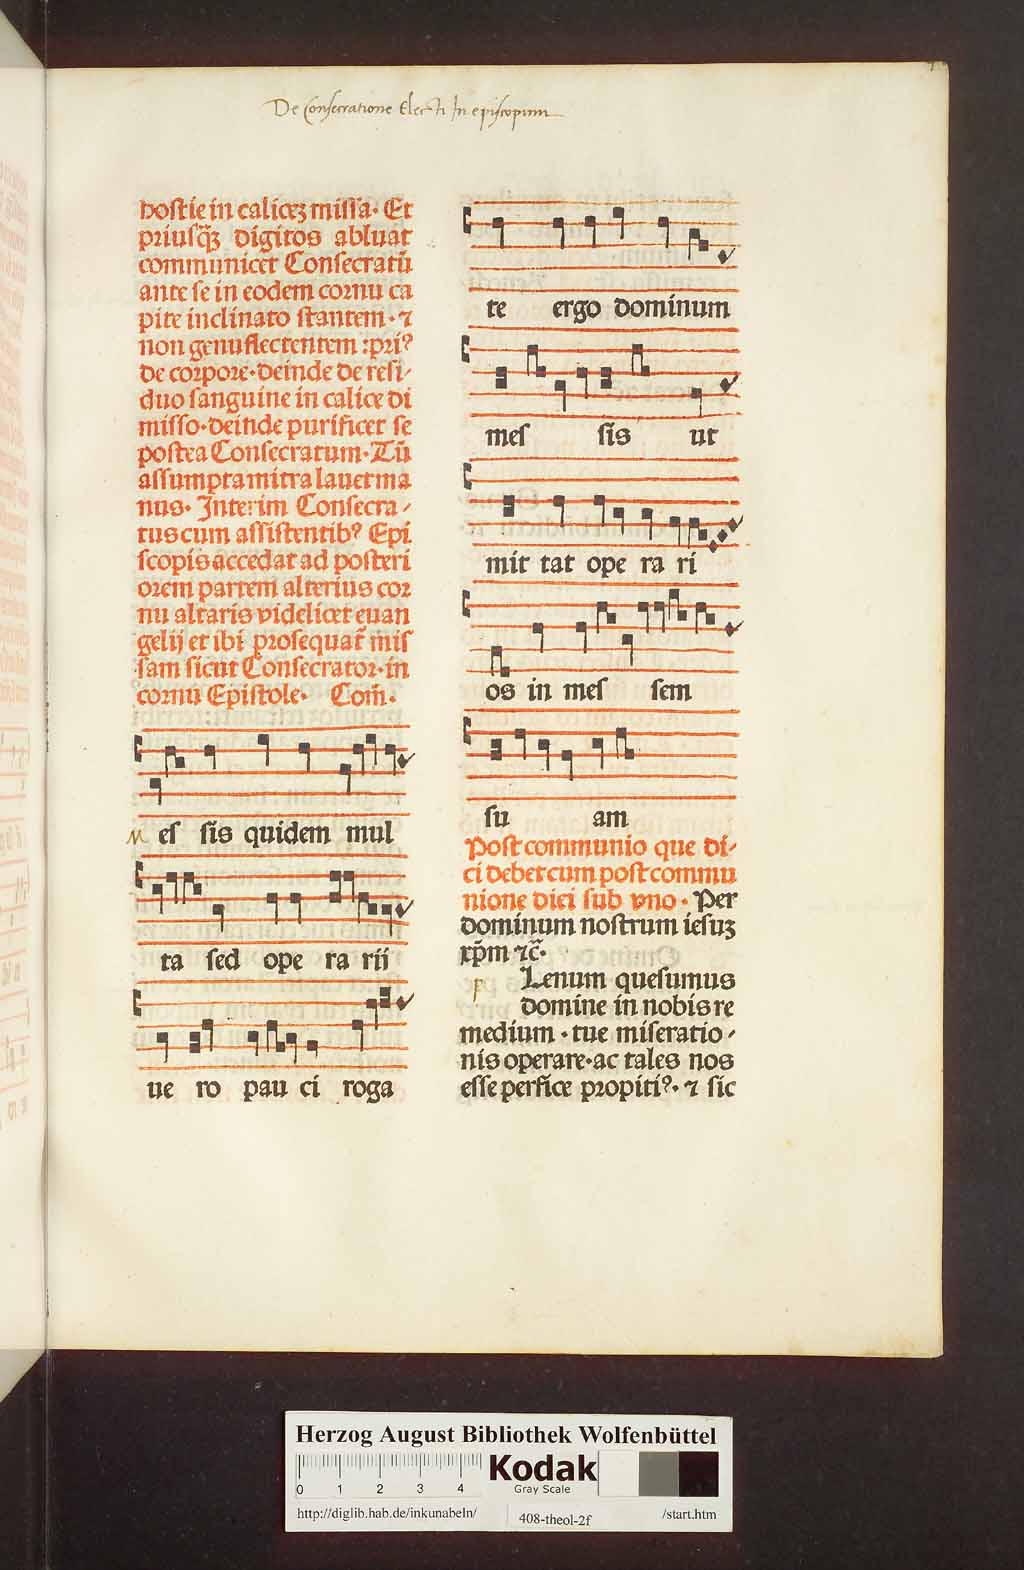 De Consecratione Electi In episcopum
hostie in calicez missa. Et
priusq̃ʒ digitos abluat
communicet Consecratũ
ante se in eodem cornu ca
pite inclinato stantem. ⁊
non genuflectentem :pri⁹
de corpore. deinde de resi⸗
duo sanguine in calice di
misso. deinde purificet se
postea Consecratum. Tũ
assumpta mitra lauet ma
nus. Interim Consecra⸗
tus cum assistentib⁹ Epi
scopis accedat ad posteri
orem partem alterius cor
nu altaris videlicet euan
gelij et ibi prosequat̃ mis
sam sicut Consecrator. in
cornu Epistole. Com̃.
M es sis quidem mul
ta sed ope ra rii
ue ro pau ci roga
te ergo dominum
mes sis ut
mit tat ope ra ri
os in mes sem
su am
Post communio que di⸗
ci debet cum post commu
nione dici sub vno. Per
dominum nostrum iesuʒ
xp̃m ⁊c̃.
p Lenum quesumus
domine in nobis re
medium. tue miseratio⸗
nis operare. ac tales nos
esse perfice propiti⁹. ⁊ sic
Herzog August Bibliothek Wolfenbüttel
0 1 2 3 4
Kodak
Gray Scale
http://diglib.hab.de/inkunabeln/ 408-theol-2f /start.htm